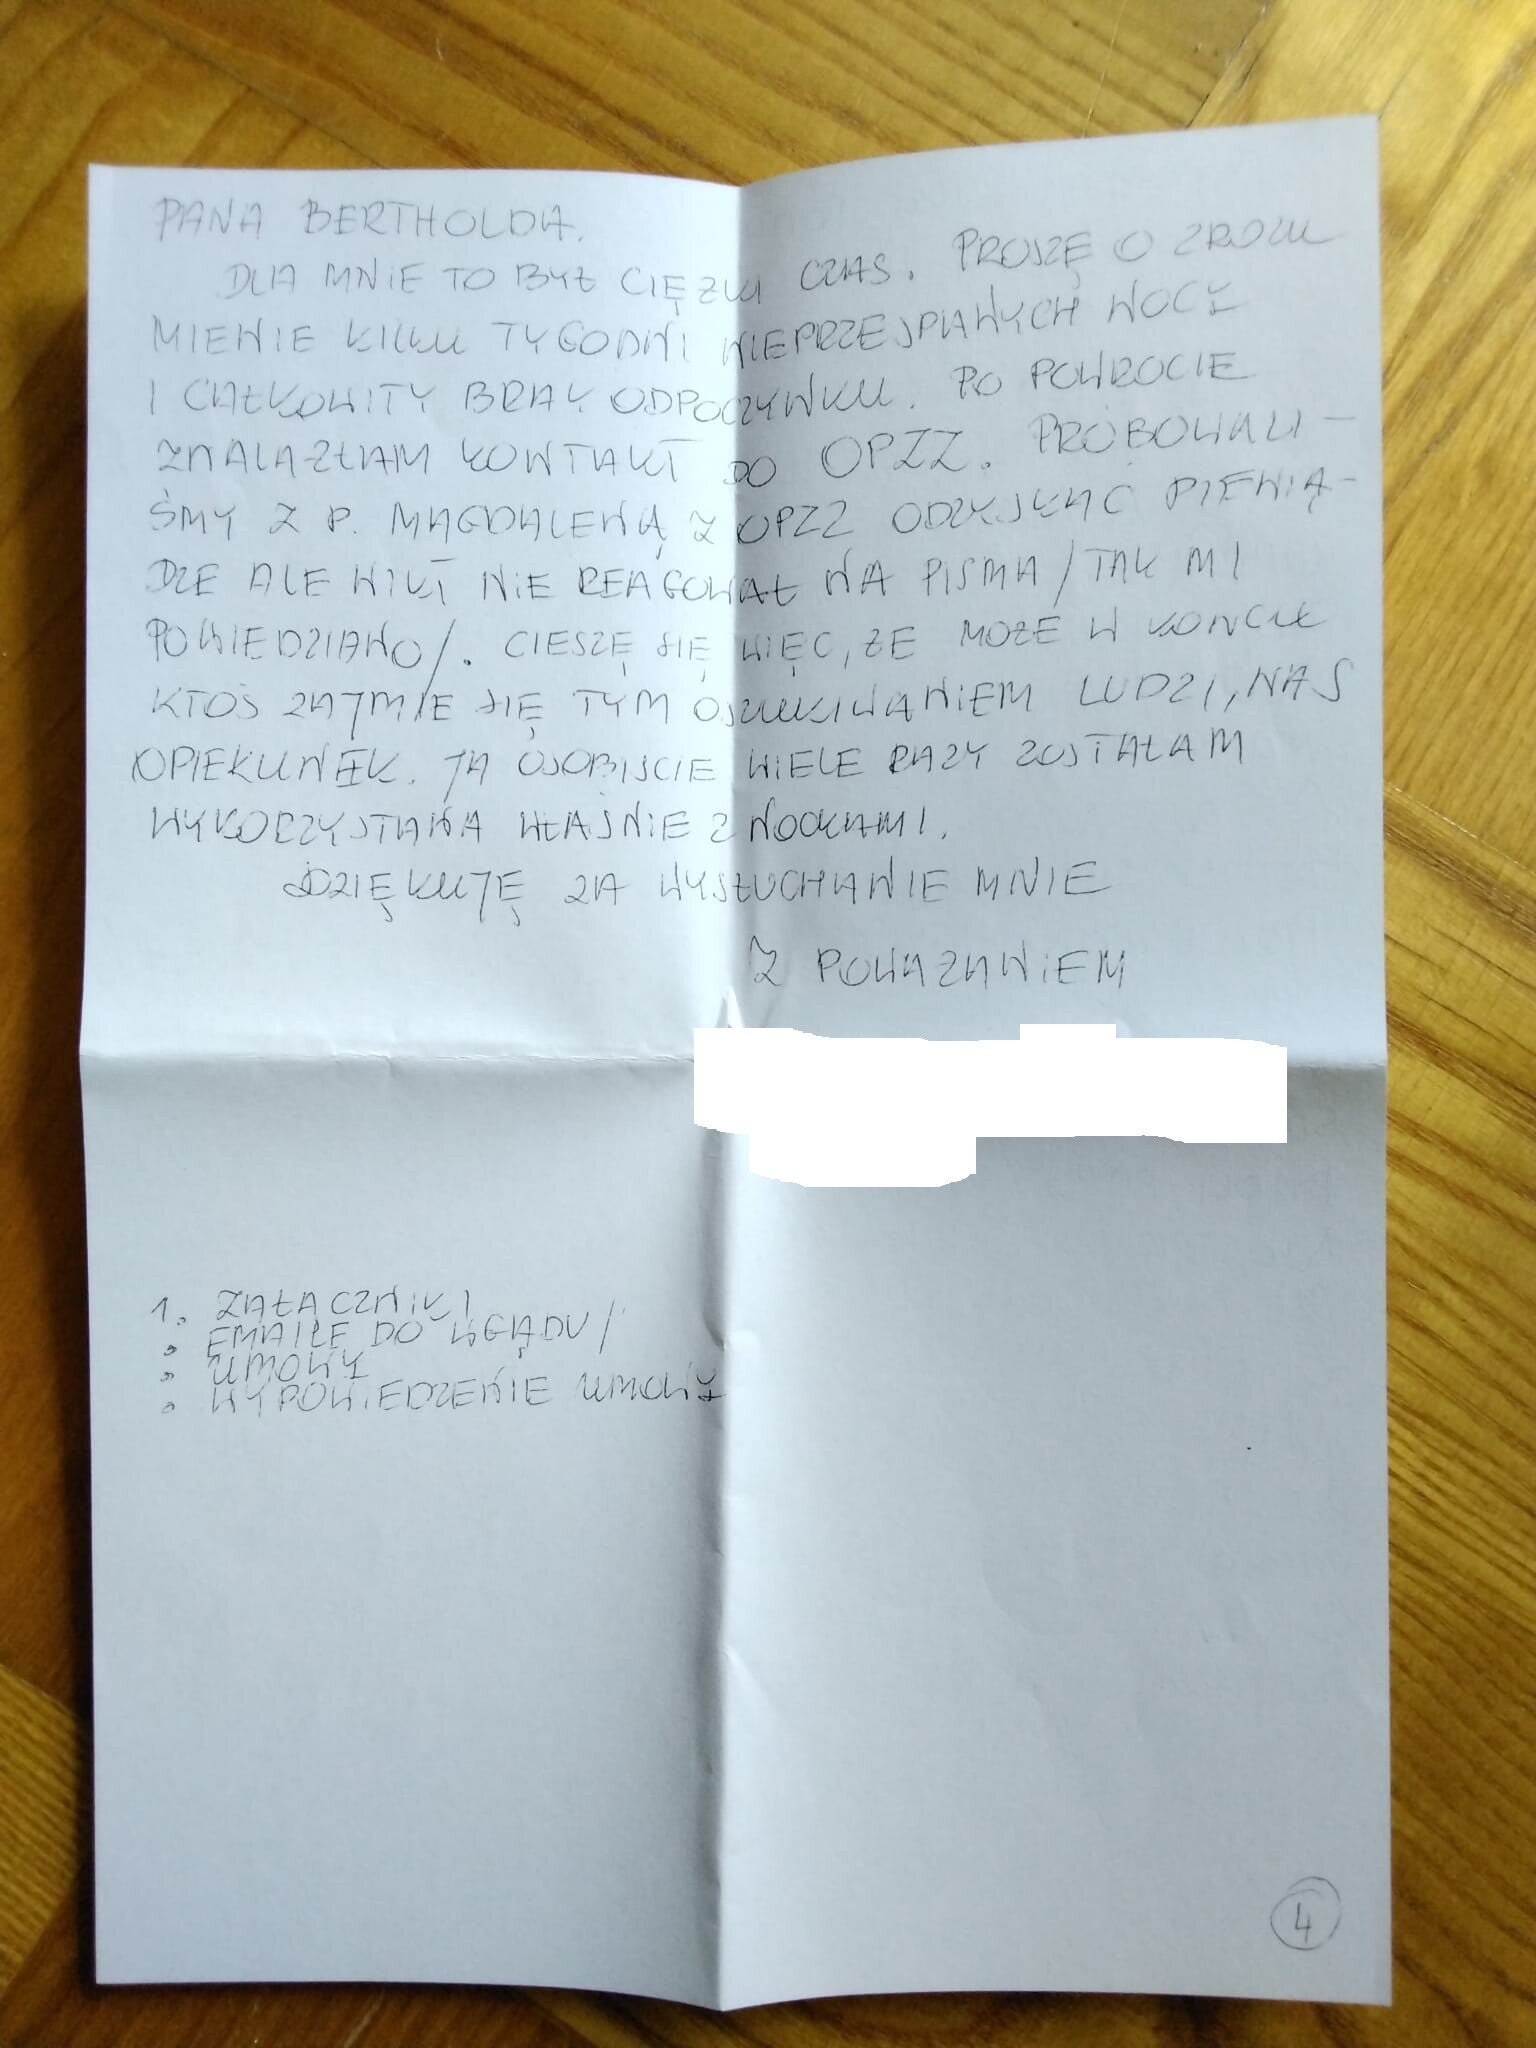 PANA BERTHOLDA.
DLA MNIE TO BYŁ CIĘŻKI CZAS. PROSZĘ O ZROZU
MIENIE KILKU TYGODNI NIEPRZESPANYCH NOCY
I CAŁKOWITY BRAK ODPOCZYNKU. PO POWROCIE
ZNALAZŁAM KONTAKT DO OPZZ. PRÓBOWALI-
ŚMY Z P. MAGDALENĄ Z OPZZ ODZYSKAĆ PIENIĄ-
DZE ALE NIKT NIE REAGOWAŁ NA PISMA/TAK MI
POWIEDZIANO/. CIESZĘ SIĘ WIĘC, ŻE MOŻE W KOŃCU
KTOŚ ZAJMIE SIĘ TYM OSZUKIWANIEM LUDZI, NAS
OPIEKUNEK. JA OSOBIŚCIE WIELE RAZY ZOSTAŁAM
WYKORZYSTANA WŁAŚNIE Z NOCKAMI.
DZIĘKUJĘ ZA WYSŁUCHANIE MNIE
Z POWAŻANIEM
1. ZAŁĄCZNIKI
• EMAILE DO WGLĄDU/
• UMOWY
• WYPOWIEDZENIE UMOWY
4